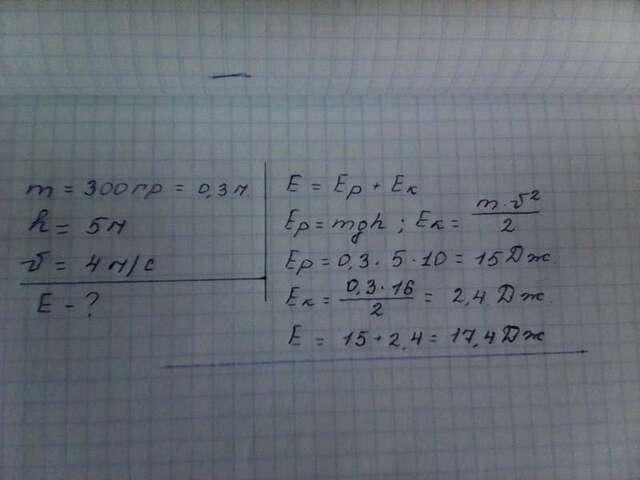 m = 300гр = 0,3м
h = 5м
v = 4м/с
E - ?
E = Eр + Eк
Eр = mgh ; Eк = m·v²/2
Eр = 0,3 · 5 · 10 = 15 Дж.
Eк = 0,3 · 16/2 = 2,4 Дж.
E = 15 + 2,4 = 17,4 Дж